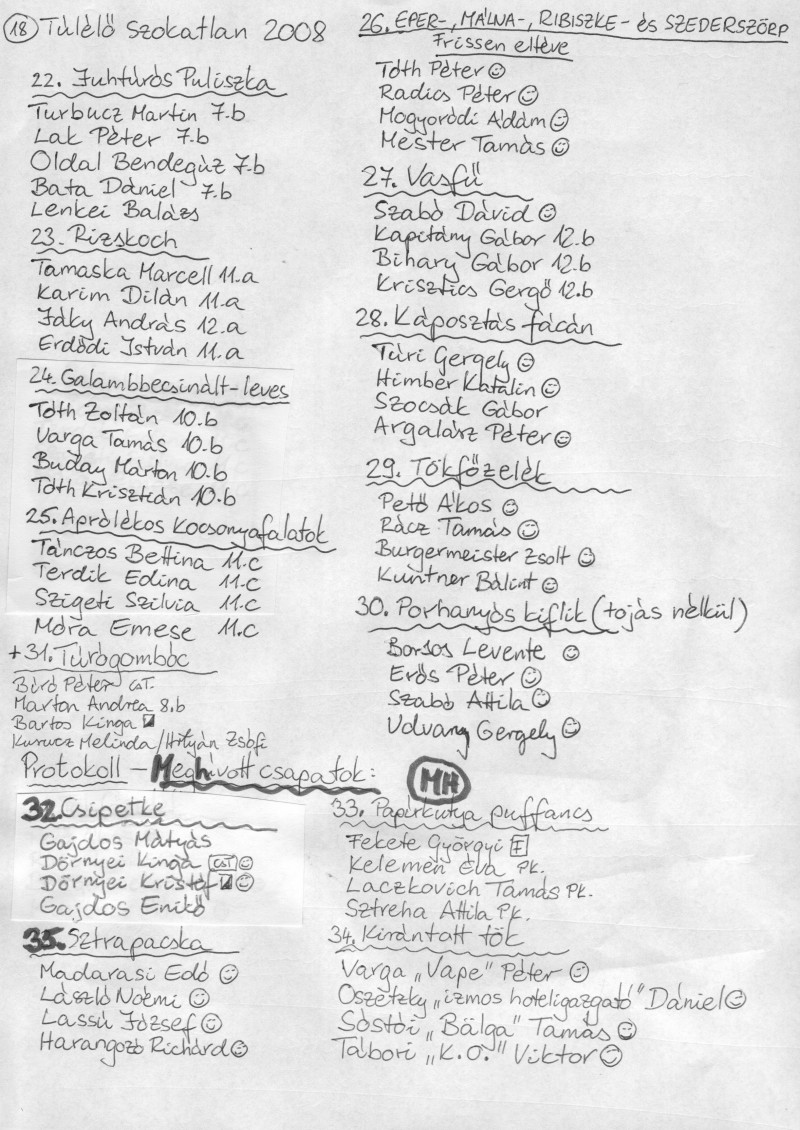 18 Túlélő szokatlan 2008
22. Juhtúrós Puliszka
Turbucz Martin 7.b
Lak Péter 7.b
Oldal Bendegúz 7.b
Bata Dániel 7.b
Lenkei Balázs
23. Rizskoch
Tamaska Marcell 11.a
Karim Dilán 11.a
Jáky András 12.a
Erdődi István 11.a
24. Galambbecsinált-leves
Tóth Zoltán 10.b
Varga Tamás 10.b
Buday Márton 10.b
Tóth Krisztián 10.b
25. Aprólékos kocsonyafalatok
Tánczos Bettina 11.c
Terdik Edina 11.c
Szigeti Szilvia 11.c
Móra Emese 11.c
+31. Túrógombóc
Bíró Péter CST.
Marton Andrea 8.b
Bartos Kinga
Kurucz Melinda/Hityán Zsófi
26. EPER-, MÁLNA-, RIBISZKE- és SZEDERSZÖRP
Frissen eltéve
Tóth Péter ☺
Radics Péter ☺
Mogyoródi Ádám ☺
Mester Tamás ☺
27. Vasfű
Szabó Dávid ☺
Kapitány Gábor 12.b
Bihary Gábor 12.b
Krisztics Gergő 12.b
28. Káposztás fácán
Túri Gergely ☺
Himber Katalin ☺
Szocsák Gábor
Argalász Péter ☺
29. Tökfőzelék
Pető Ákos ☺
Rácz Tamás ☺
Burgermeister Zsolt ☺
Kuntner Bálint ☺
30. Porhanyós kiflik (tojás nélkül)
Borsos Levente ☺
Erős Péter ☺
Szabó Attila ☺
Udvary Gergely ☺
Protokoll – Meghívott csapatok: MH
32. Csipetke
Gajdos Mátyás
Dörnyei Kinga CST ☺
Dörnyei Kristóf ☺
Gajdos Enikő
35. Sztrapacska
Madarasi Edő ☺
László Noémi ☺
Lassú József ☺
Harangozó Richárd ☺
33. Papírkutya puffancs
Fekete Györgyi F
Kelemen Éva Pk.
Laczkovich Tamás Pk.
Sztreha Attila Pk.
34. Kirántott tök
Varga „Vape” Péter ☺
Oszetzky „izmos hoteligazgató” Dániel ☺
Sóstói „Bälga” Tamás ☺
Tábori „K.O.” Viktor ☺